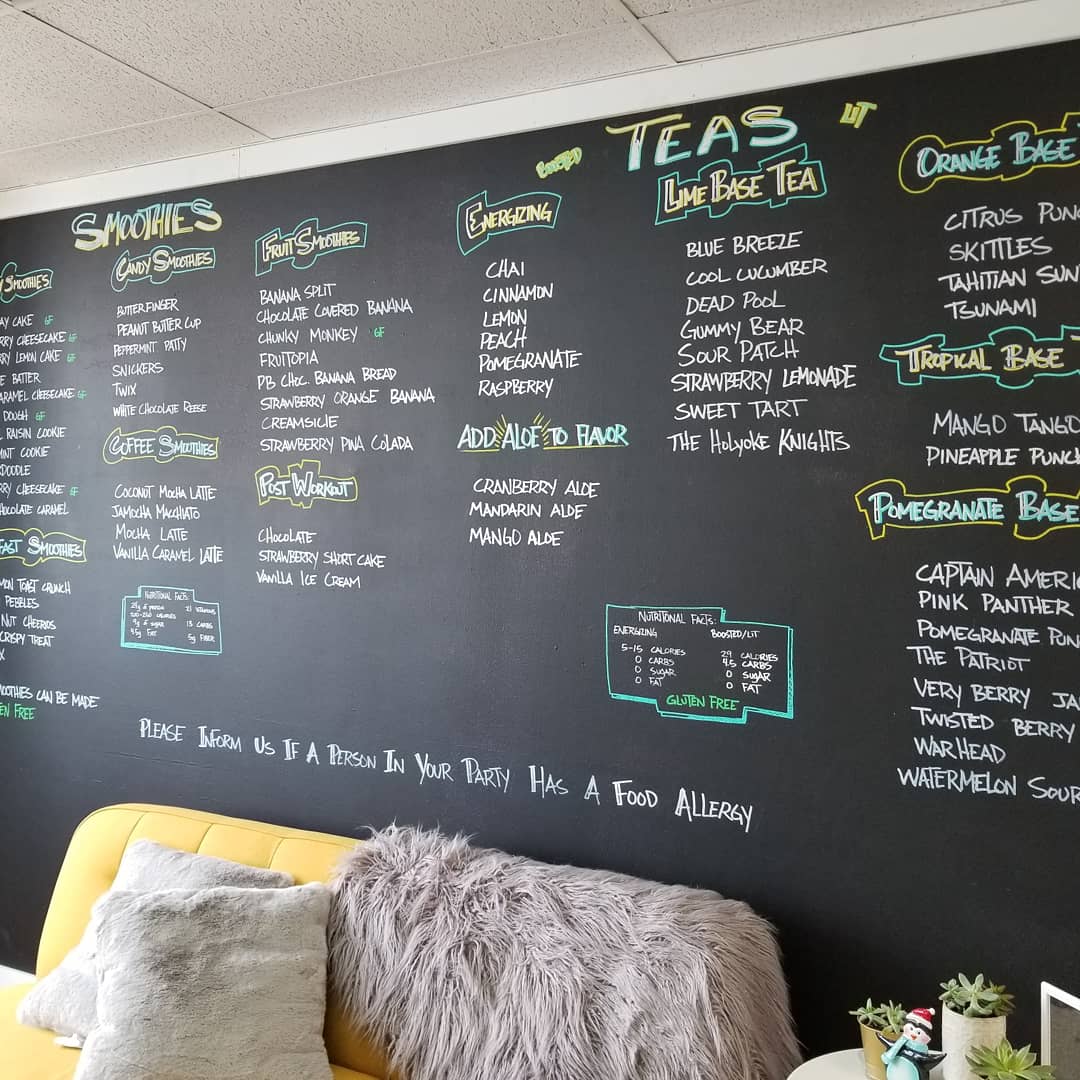 SMOOTHIES
SMOOTHIES
CAKE GF
CHEESECAKE GF
LEMON CAKE GF
BATTER
CARAMEL CHEESECAKE GF
DOUGH GF
RAISIN COOKIE
MINT COOKIE
CHEESECAKE GF
CHOCOLATE CARAMEL
SMOOTHIES
TOAST CRUNCH
PEBBLES
NUT CHEERIOS
CRISPY TREAT
CAN BE MADE
FREE
CANDY SMOOTHIES
BUTTERFINGER
PEANUT BUTTER CUP
PEPPERMINT PATTY
SNICKERS
TWIX
WHITE CHOCOLATE REESE
COFFEE SMOOTHIES
COCONUT MOCHA LATTE
JAMOCHA MACCHIATO
MOCHA LATTE
VANILLA CARAMEL LATTE
NUTRITIONAL FACTS:
FRUIT SMOOTHIES
BANANA SPLIT
CHOCOLATE COVERED BANANA
CHUNKY MONKEY GF
FRUITOPIA
PB CHOC. BANANA BREAD
STRAWBERRY ORANGE BANANA
CREAMSICLE
STRAWBERRY PINA COLADA
POST WORKOUT
CHOCOLATE
STRAWBERRY SHORT CAKE
VANILLA ICE CREAM
TEAS
BOOSTED
LIT
ENERGIZING
CHAI
CINNAMON
LEMON
PEACH
POMEGRANATE
RASPBERRY
ADD ALOE TO FLAVOR
CRANBERRY ALOE
MANDARIN ALOE
MANGO ALOE
LIME BASE TEA
BLUE BREEZE
COOL CUCUMBER
DEAD POOL
GUMMY BEAR
SOUR PATCH
STRAWBERRY LEMONADE
SWEET TART
THE HOLYOKE KNIGHTS
NUTRITIONAL FACTS:
ENERGIZING BOOSTED/LIT
5-15 CALORIES 29 CALORIES
0 CARBS 4.5 CARBS
0 SUGAR 0 SUGAR
0 FAT 0 FAT
GLUTEN FREE
ORANGE BASE
CITRUS
SKITTLES
TAHITIAN
TSUNAMI
TROPICAL BASE
MANGO TANGO
PINEAPPLE PUNCH
POMEGRANATE BASE
CAPTAIN
PINK PANTHER
POMEGRANATE
THE PATRIOT
VERY BERRY
TWISTED BERRY
WARHEAD
WATERMELON SOUR
PLEASE INFORM US IF A PERSON IN YOUR PARTY HAS A FOOD ALLERGY